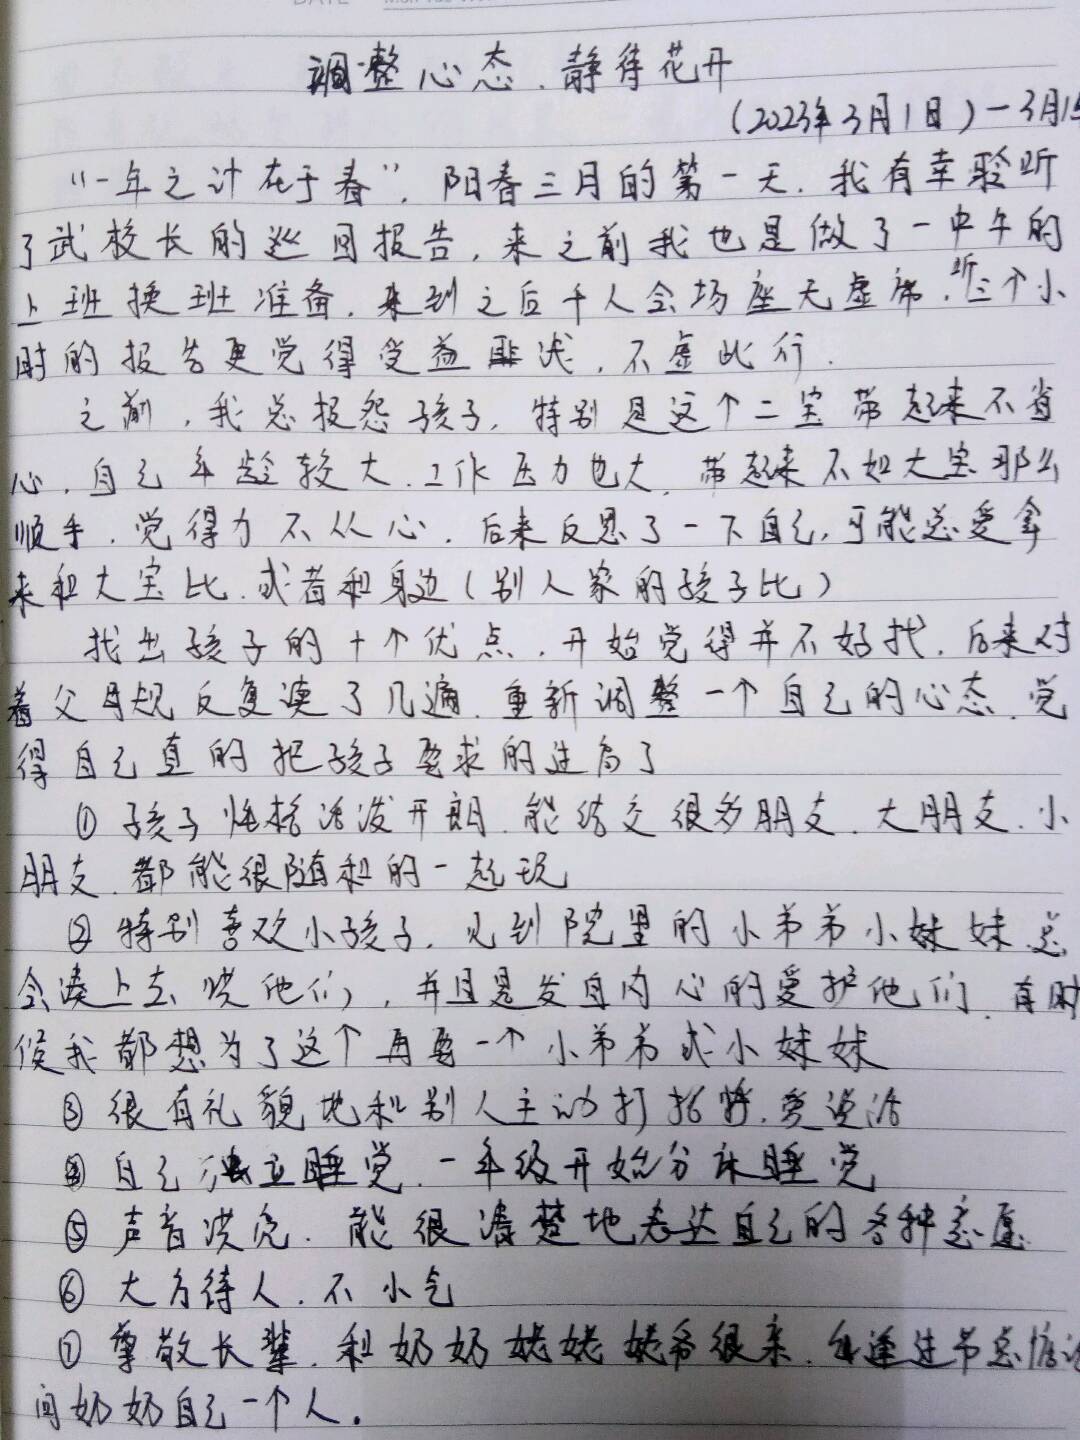 调整心态、静待花开
(2023年3月1日)一3月15
"一年之计在于春",阳春三月的第一天,我有幸聆听
了武校长的巡回报告,来之前我也是做了一中午的
上班换班准备,来到之后千人会场座无虚席,听三个小
时的报告更觉得受益匪浅,不虚此行.
之前,我总报怨孩子,特别是这个二宝带起来不省
心,自己年龄较大,工作压力也大,带起来不如大宝那么
顺手,觉得力不从心,后来反思了一下自己,可能总爱拿
来和大宝比,或者和身边(别人家的孩子比)
找出孩子的十个优点,开始觉得并不好找,后来对
着父母规反复读了几遍,重新调整一个自己的心态,觉
得自己真的把孩子要求的过高了
①孩子性格活泼开朗,能结交很多朋友,大朋友、小
朋友,都能很随和的一起玩
②特别喜欢小孩子,见到院里的小弟弟小妹妹总
会凑上去哄他们,并且是发自内心的爱护他们,有时
候我都想为了这个再要一个小弟弟或小妹妹
③很有礼貌地和别人主动打招呼,爱说话
④自己独立睡觉,一年级开始分床睡觉
⑤声音洪亮,能很清楚地表达自己的各种意愿
⑥大方待人,不小气
⑦尊敬长辈,和奶奶姥姥姥爷很亲,每逢过节总惦记
间奶奶自己一个人。